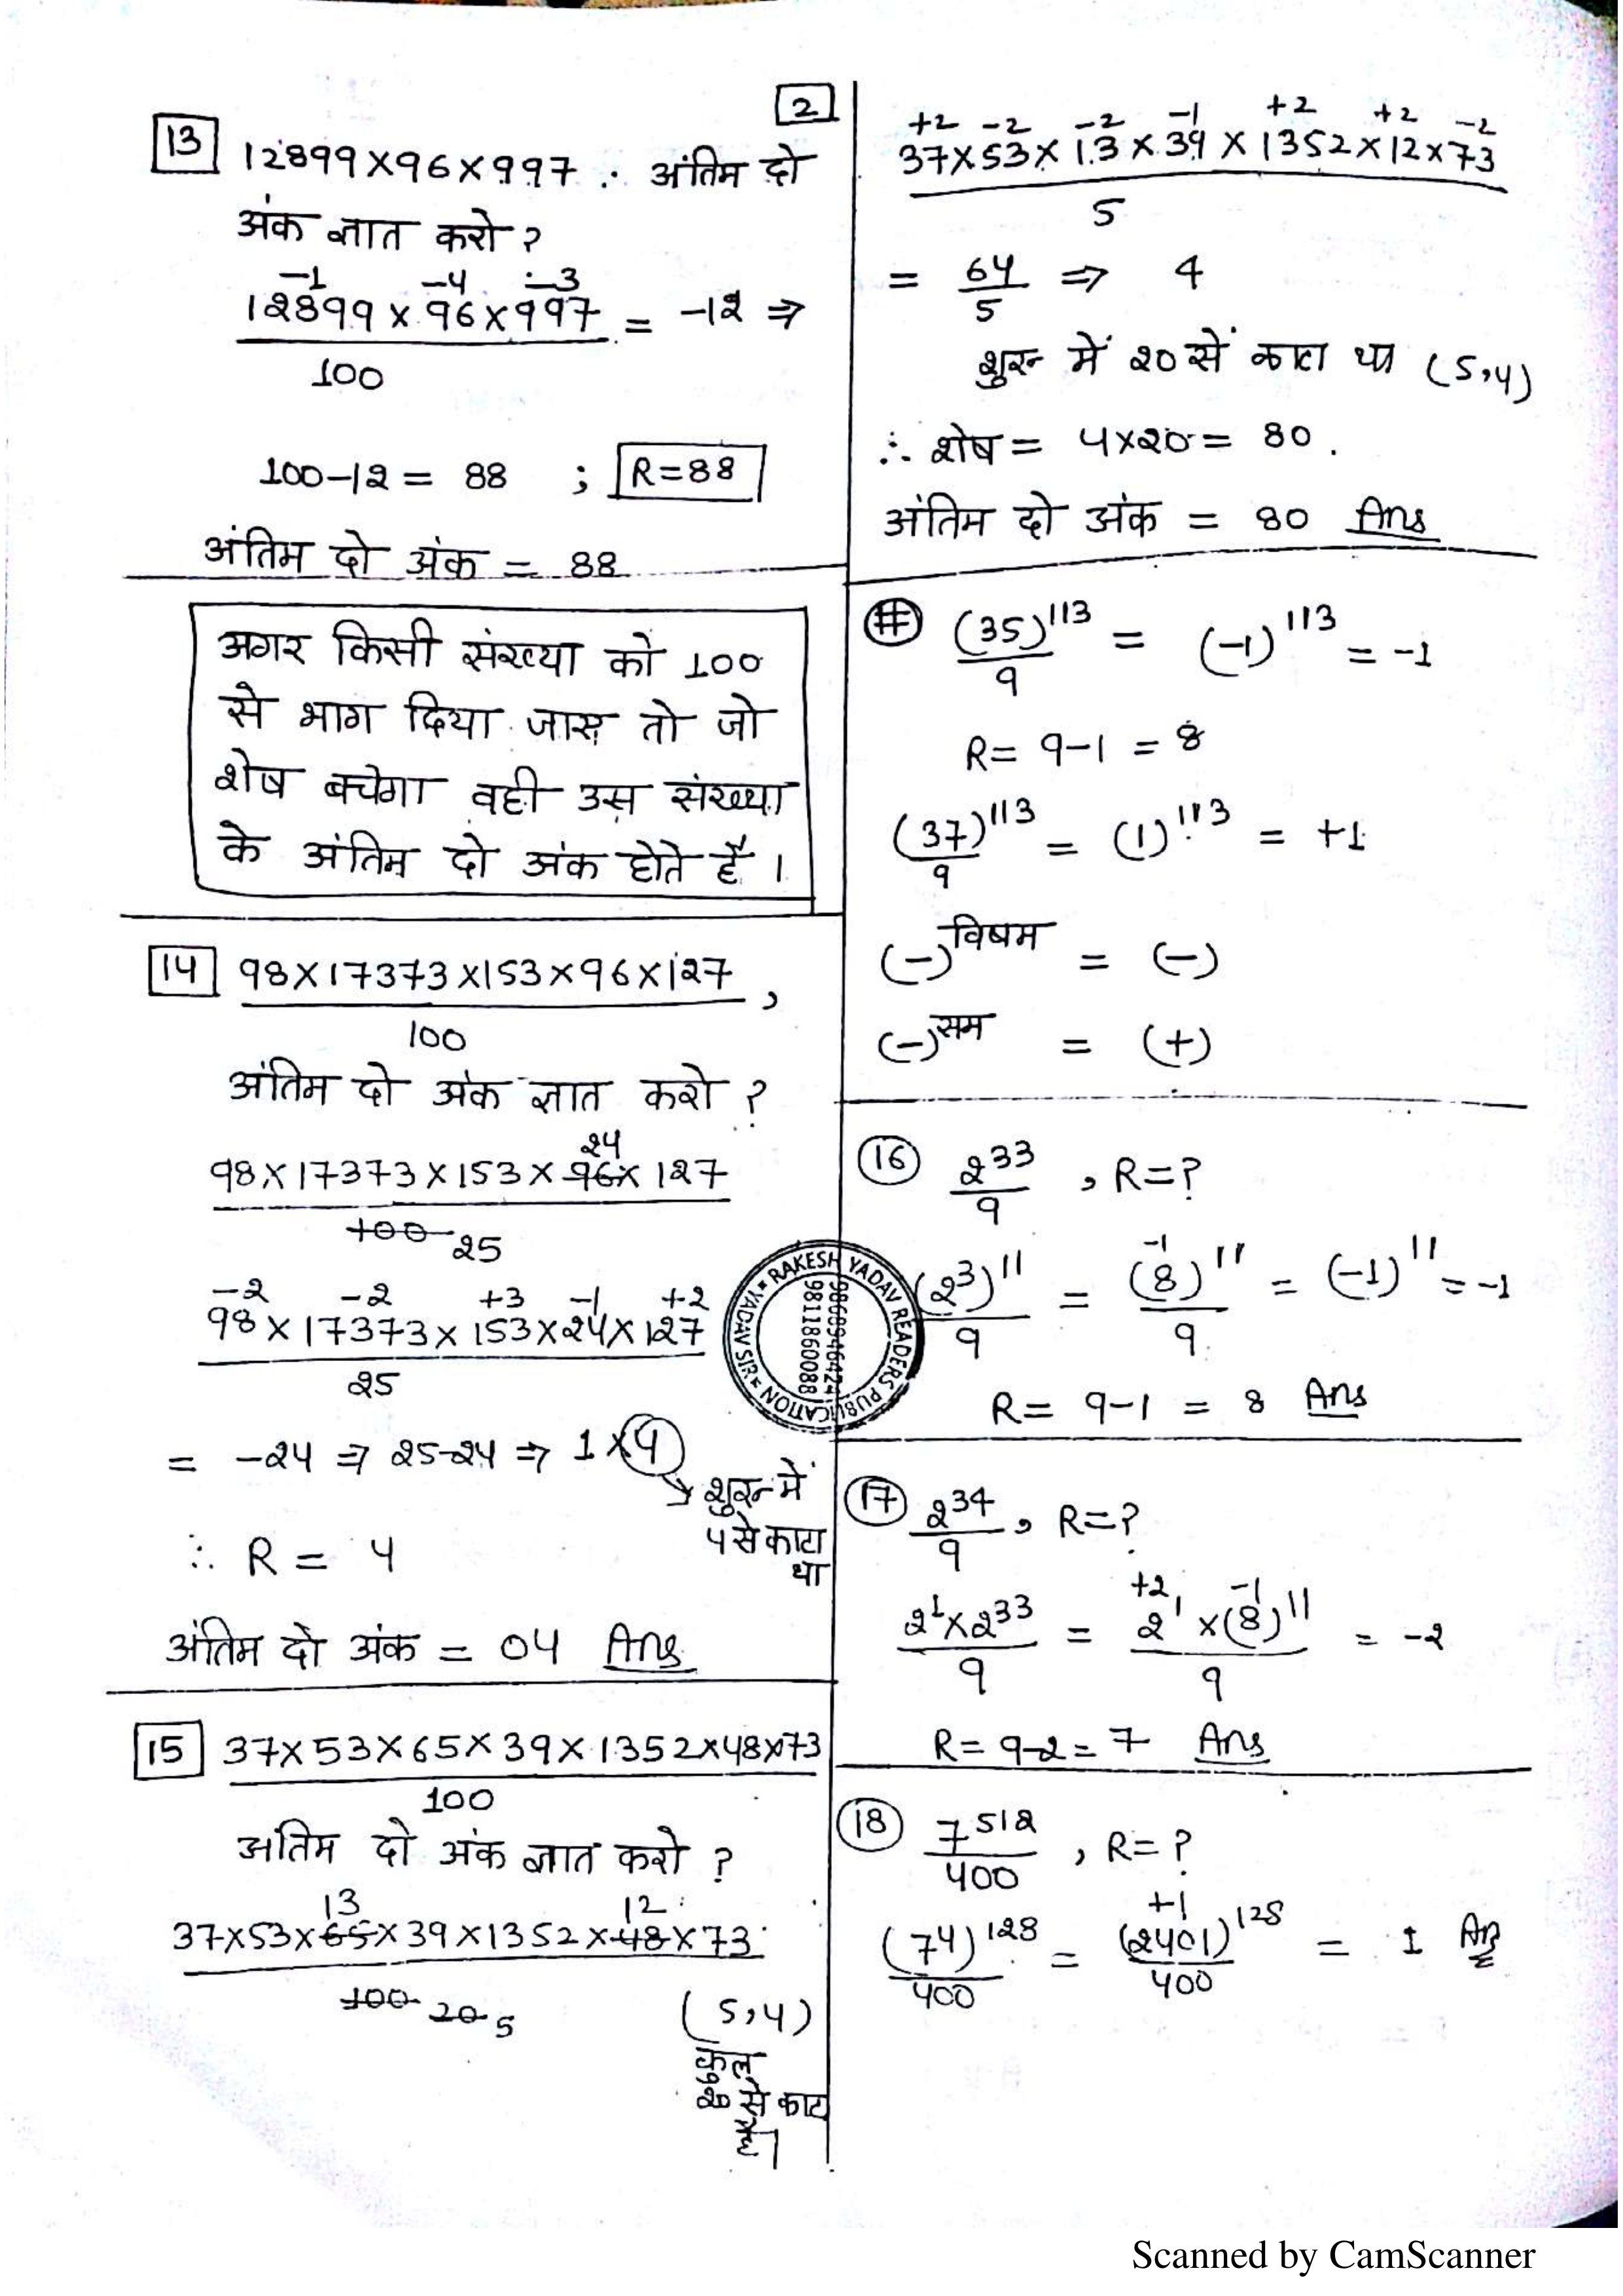 2
13 12899×96×997 ∴ अंतिम दो
अंक ज्ञात करो ?
-1 -4 -3
12899×96×997 = -12 ⇒
100
100-12 = 88 ; R=88
अंतिम दो अंक = 88
अगर किसी संख्या को 100
से भाग दिया जाए तो जो
शेष बचेगा वही उस संख्या
के अंतिम दो अंक होते है ।
14 98×17373×153×96×127 ,
100
अंतिम दो अंक ज्ञात करो ?
24
98×17373×153×96×127
100 25
-2 -2 +3 -1 +2
98×17373×153×24×127
25
= -24 ⇒ 25-24 ⇒ 1×4
→ शुरू में
4 से काटा
था
∴ R = 4
अंतिम दो अंक = 04 Ans
15 37×53×65×39×1352×48×73
100
अंतिम दो अंक ज्ञात करो ?
13 12
37×53×65×39×1352×48×73
100 20 5
(5,4)
कुल
20 से काटा
है।
+2 -2 -2 -1 +2 +2 -2
37×53×13×39×1352×12×73
5
= 64/5 ⇒ 4
शुरू में 20 से काटा था (5,4)
∴ शेष = 4×20 = 80.
अंतिम दो अंक = 80 Ans
# (35)^113/9 = (-1)^113 = -1
R= 9-1 = 8
(37)^113/9 = (1)^113 = +1
(-)^विषम = (-)
(-)^सम = (+)
16 2^33/9 , R=?
-1
(2^3)^11/9 = (8)^11/9 = (-1)^11 = -1
R= 9-1 = 8 Ans
17 2^34/9 , R=?
+2 -1
2^1×2^33/9 = 2^1×(8)^11/9 = -2
R= 9-2 = 7 Ans
18 7^512/400 , R=?
+1
(7^4)^128/400 = (2401)^128/400 = 1 Ans
RAKESH YADAV READERS PUBLICATION * YADAV SIR *
9868946424
9811860088
Scanned by CamScanner